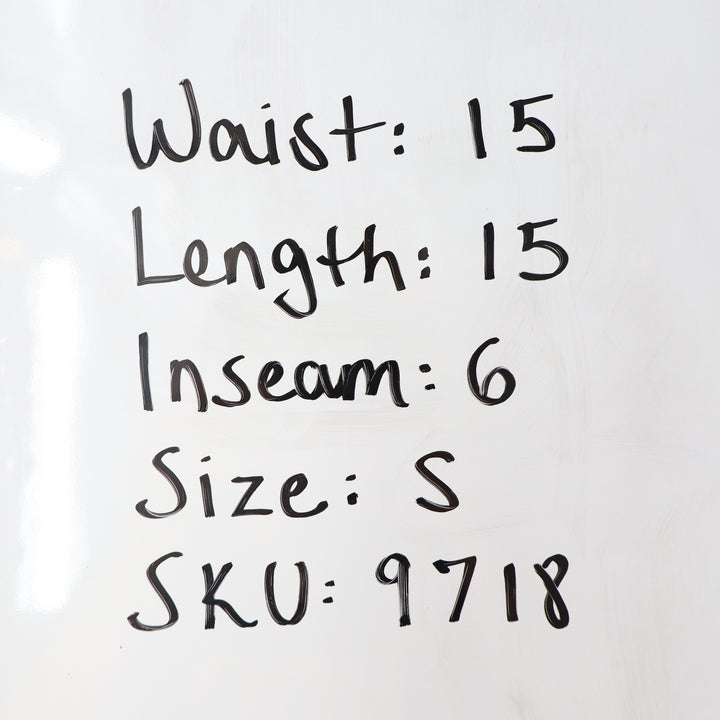 Waist: 15
Length: 15
Inseam: 6
Size: S
SKU: 9718